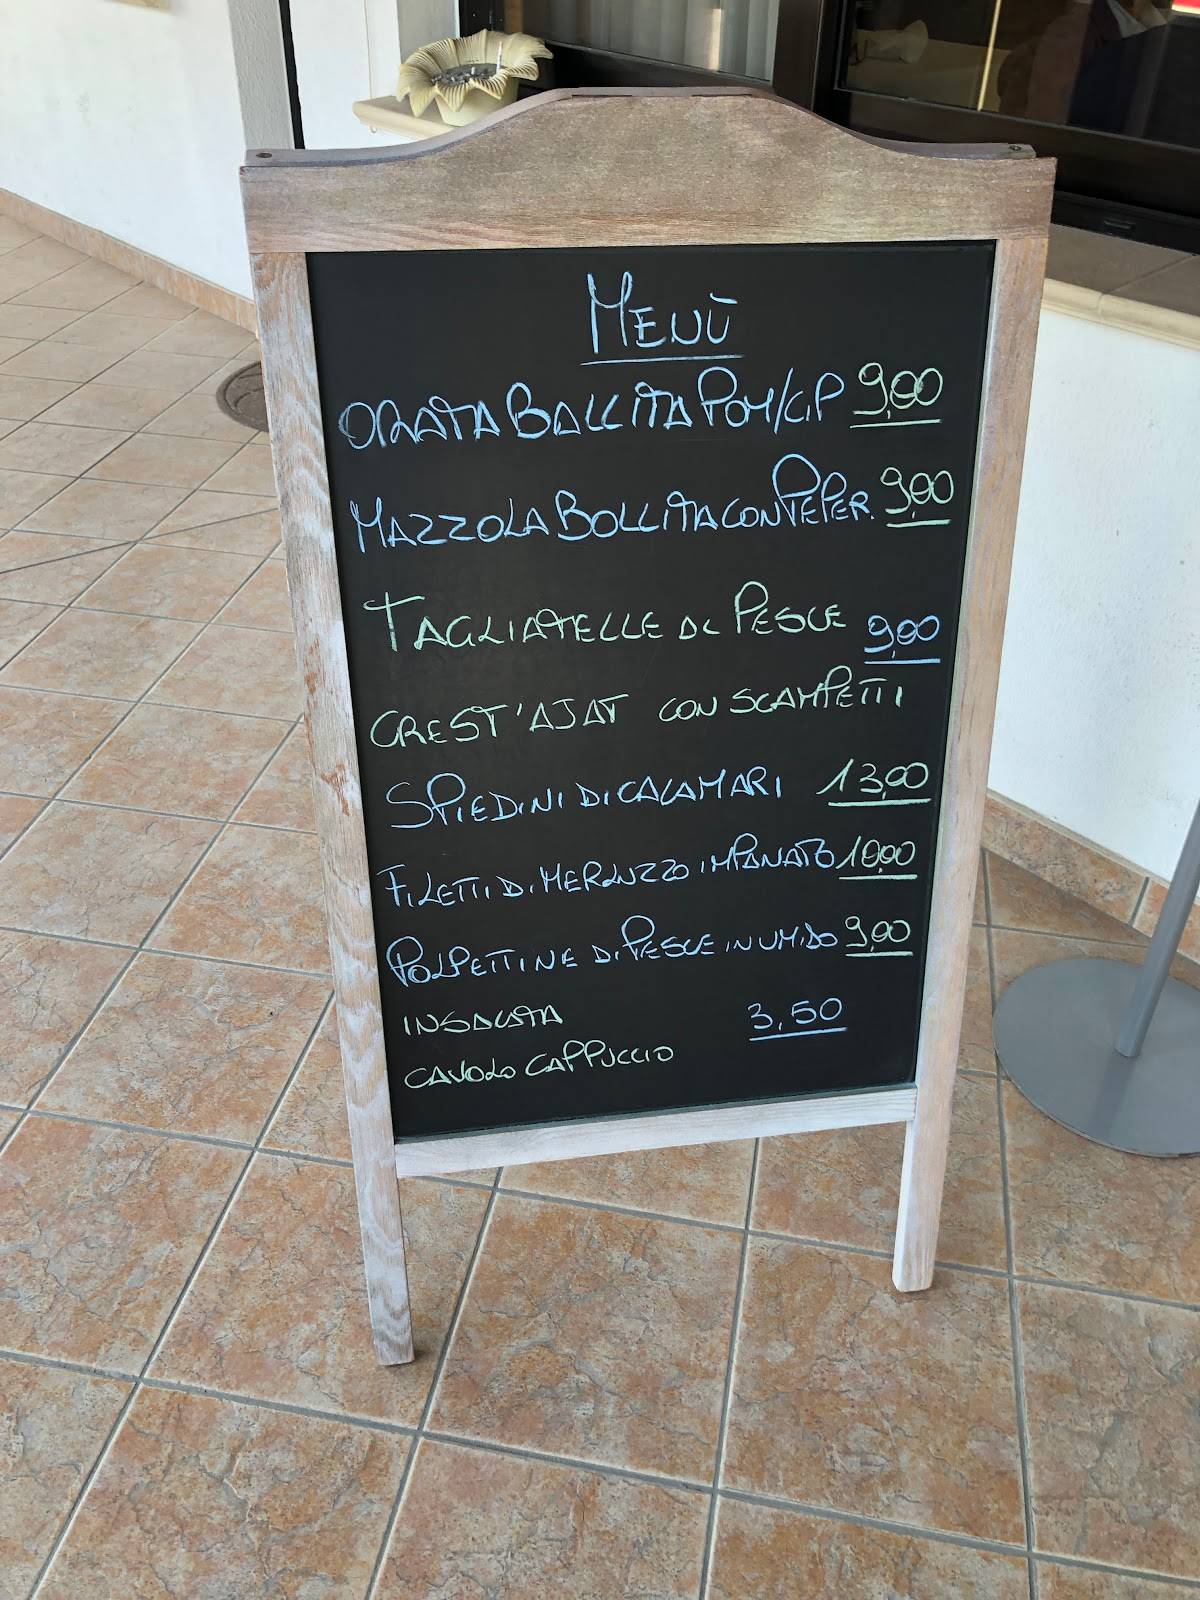 Menù
ORATA BALLITA POM/C,P 9,00
MAZZOLA BOLLITA CON PEPER. 9,00
TAGLIATELLE DI PESCE 9,00
CREST'AJAT CON SCAMPETTI
SPIEDINI DI CALAMARI 13,00
FILETTI DI MERLUZZO IMPANATO 10,00
POLPETTINE DI PESCE IN UMIDO 9,00
INSALATA 3,50
CAVOLO CAPPUCCIO